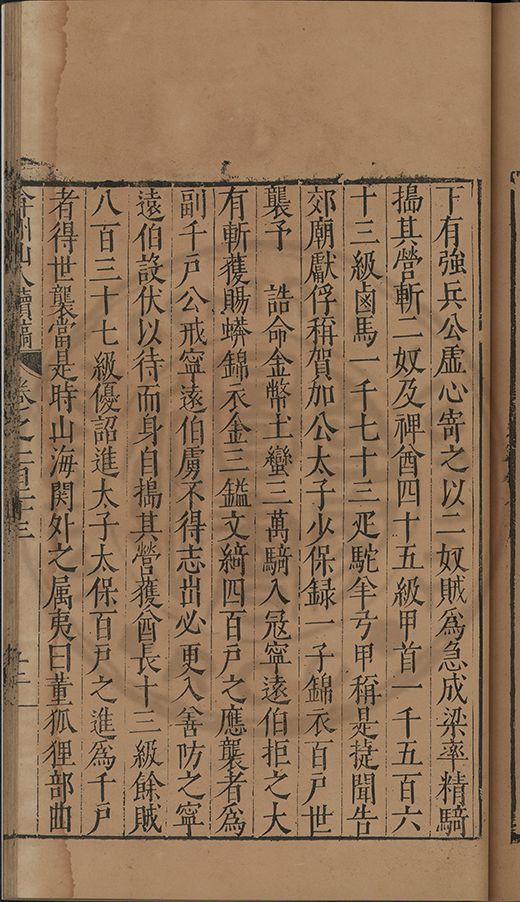 下有強兵公虛心寄之以二奴賊爲急成梁率精騎
搗其營斬二奴及裨酋四十五級甲首一千五百六
十三級鹵馬一千七十三疋駝羊弓甲稱是捷聞告
郊廟獻俘稱賀加公太子少保録一子錦衣百戸世
襲予　誥命金幣土蠻三萬騎入冦寧遠伯拒之大
有斬獲賜蟒錦衣金三鎰文綺四百戸之應襲者爲
副千戸公戒寧遠伯虜不得志出必更入善防之寧
遠伯設伏以待而身自搗其營獲酋長十三級餘賊
八百三十七級優詔進太子太保百戸之進爲千戸
者得世襲當是時山海関外之属夷曰董狐狸部曲
弇州山人續稿　卷之一百三十三